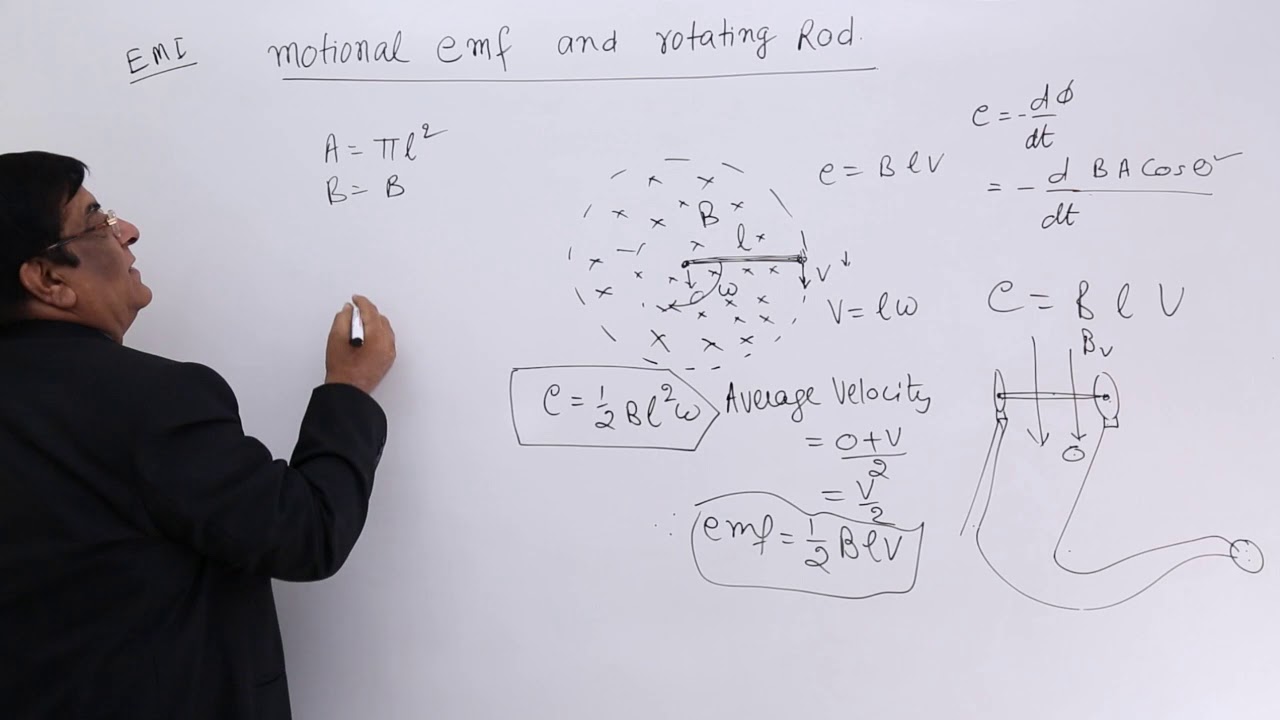 EMI
motional emf and rotating Rod.
A = πl²
B = B
B
l
ω
V
e = BlV
V = lω
e = ½Bl²ω
Average Velocity
= 0+V/2
= V/2
∴ emf = ½BlV
e = -dϕ/dt
= - d BA Cosθ/dt
e = B l V
Bv